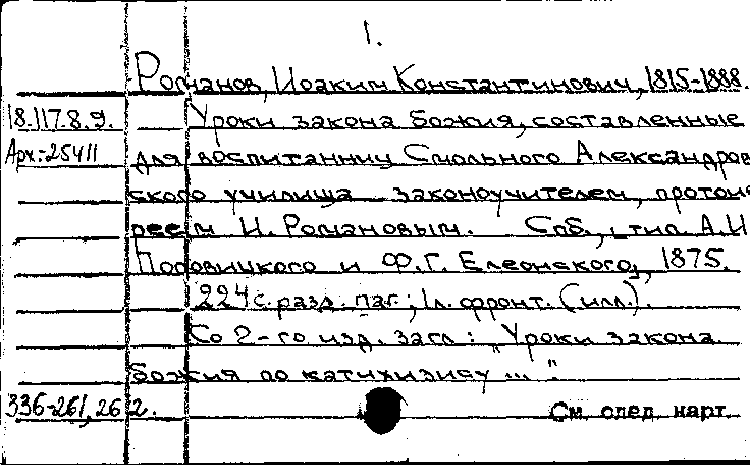 1.
Романов, Иоаким Константинович, 1815-1888.
18.117.8.9.
Уроки закона божия, составленные
Арх.=25411
для воспитанниц Смольного Александров
ского училища законоучителем, протоие
реем И. Романовым. Спб., тип. А.И
Поповицкого и Ф.Г. Елеонского, 1875.
224 с. разд. паг.; 1 л. фронт. (илл.).
Со 2-го изд. загл.: "Уроки закона
божия по катихизису ...".
336-261, 262.
См. след. карт.